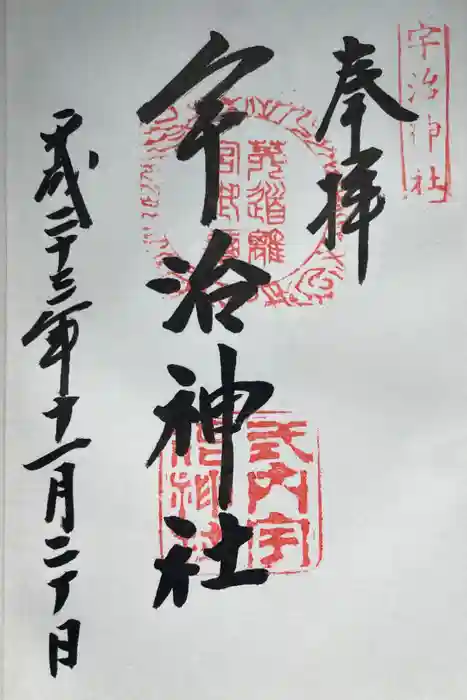 宇治神社
奉拝
宇治神社
式内宇
治神社
平成二十三年十一月二十日